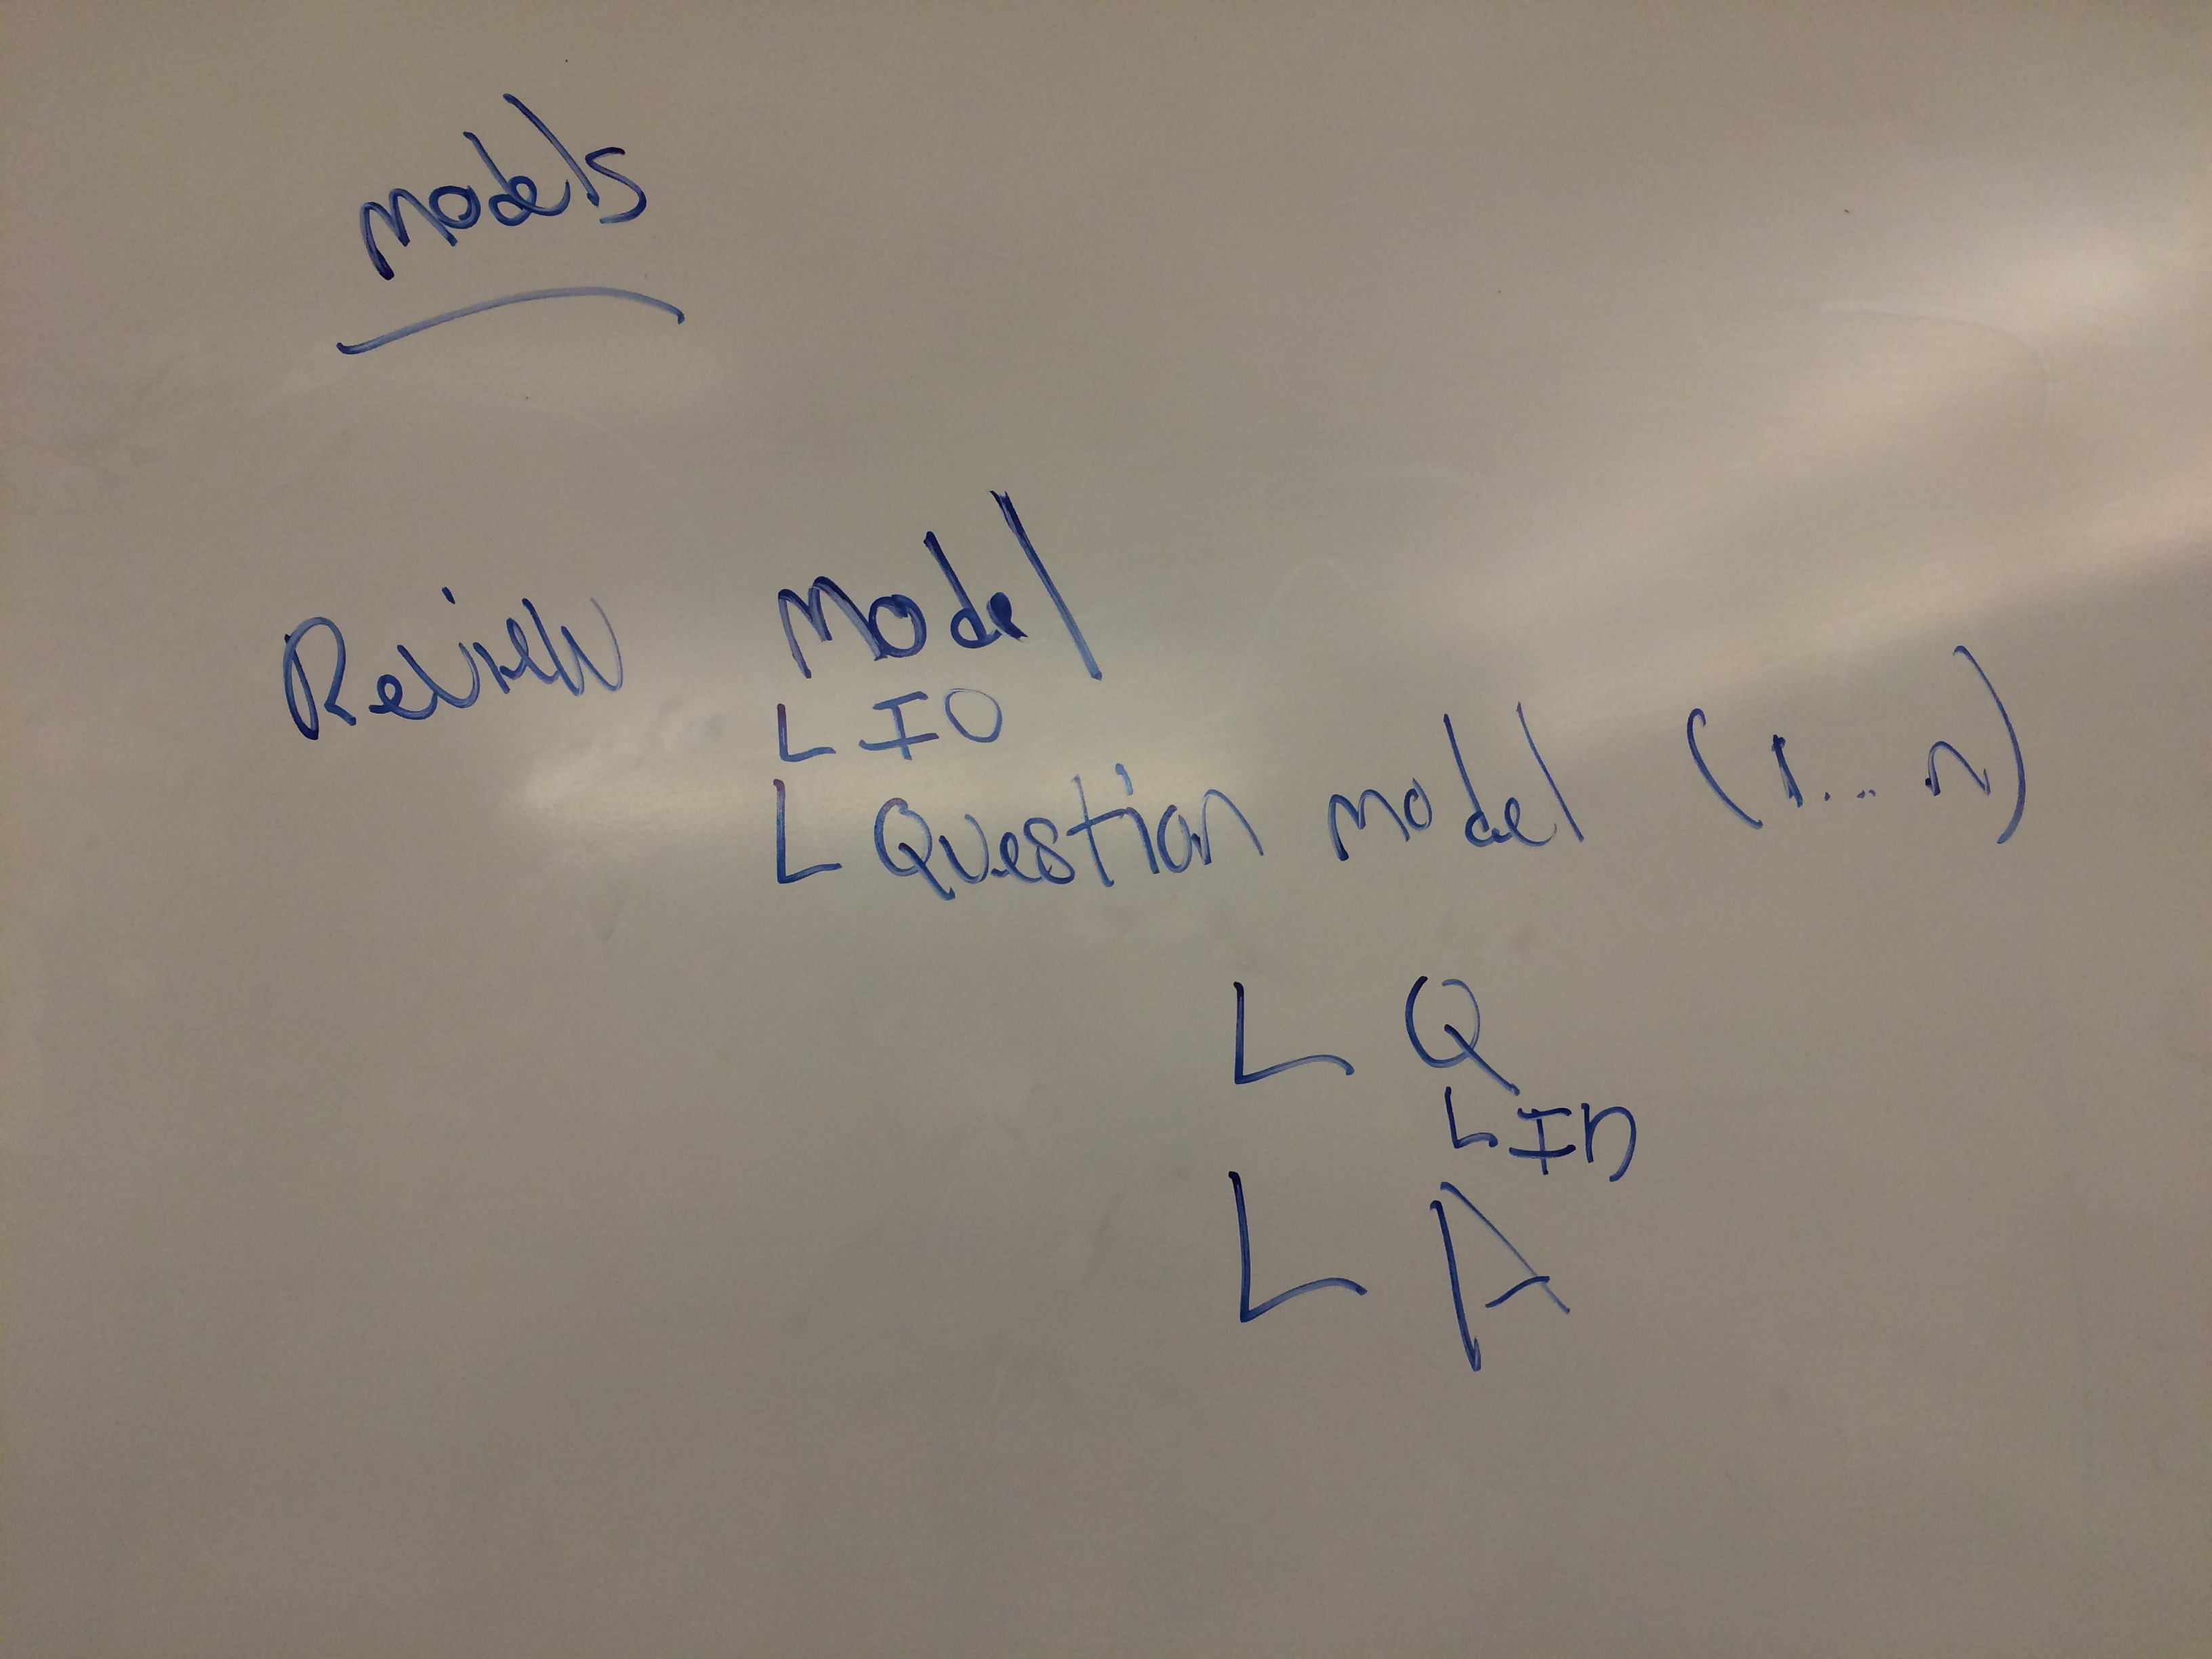 models
Review Model
L ID
L Question model (1... n)
L Q
L ID
L A